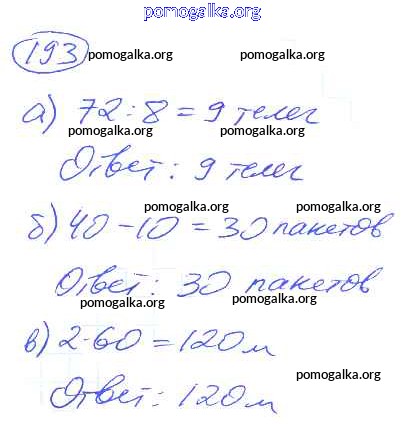 pomogalka.org
193 pomogalka.org pomogalka.org
а) 72 : 8 = 9 телег
pomogalka.org pomogalka.org
Ответ : 9 телег
pomogalka.org pomogalka.org
б) 40 - 10 = 30 пакетов
Ответ : 30 пакетов
pomogalka.org pomogalka.org
в) 2 · 60 = 120 м
pomogalka.org
Ответ : 120 м